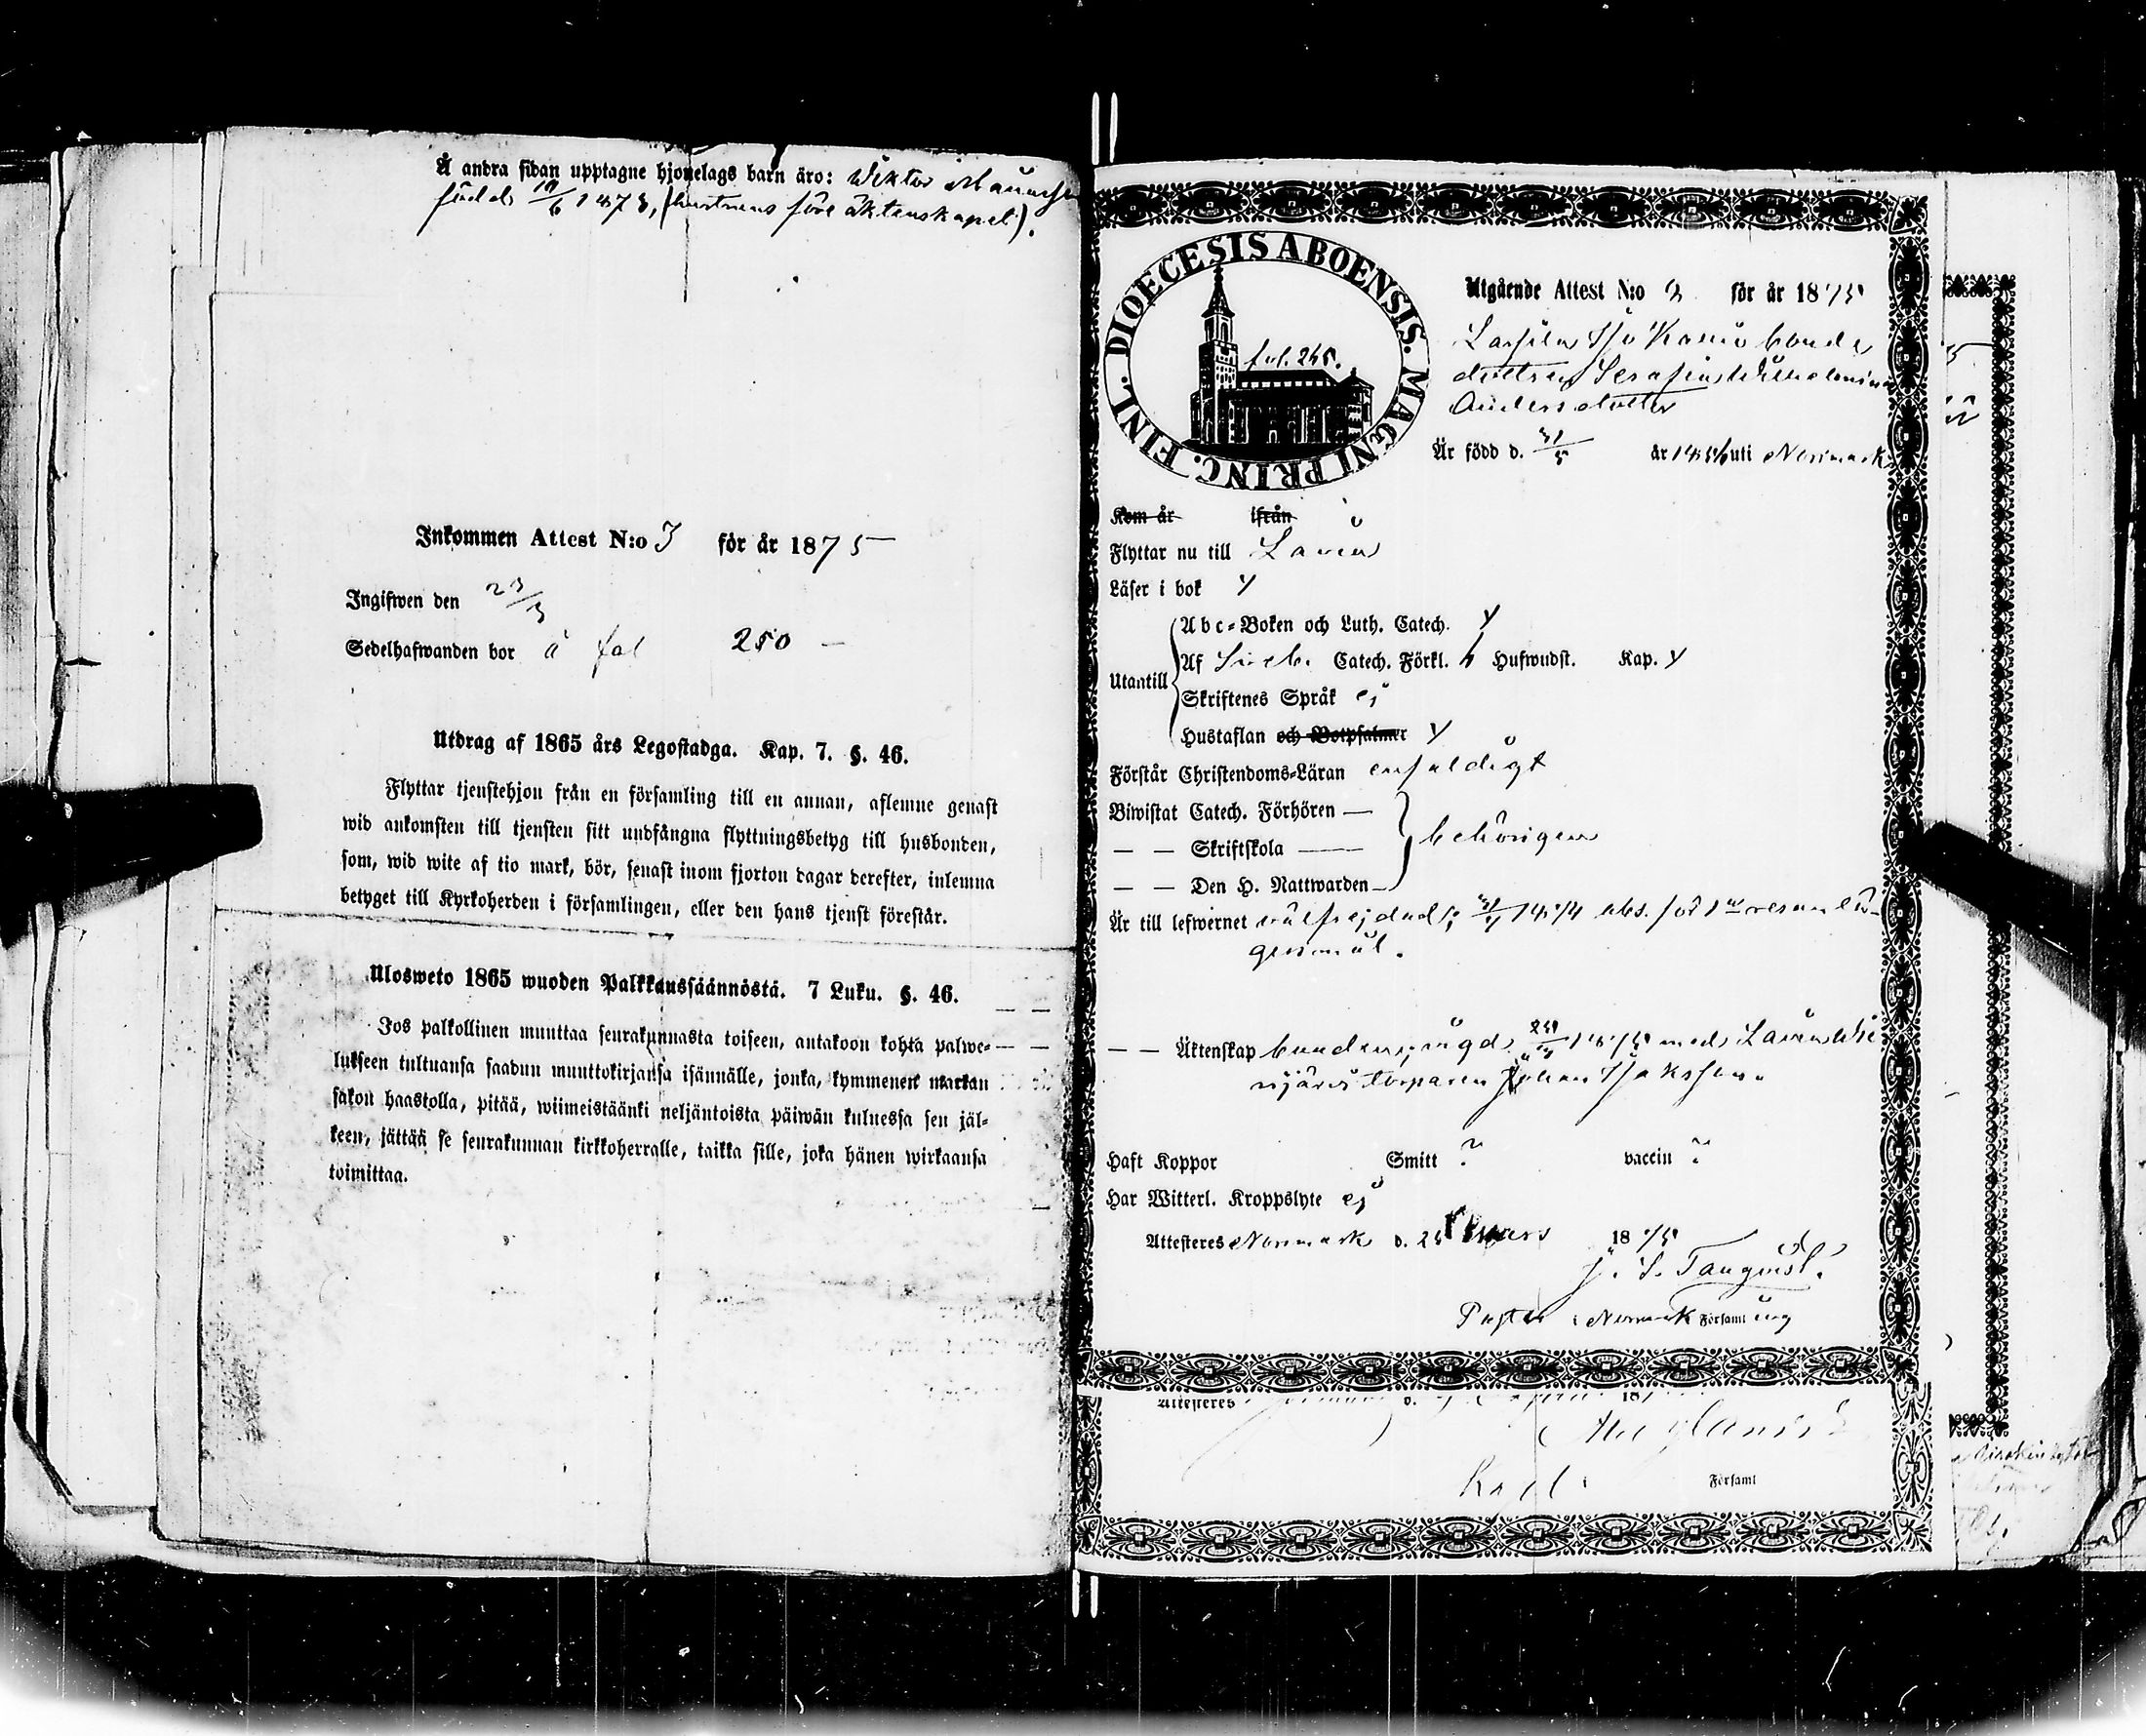 Å andra sidan upptagne hjonelags barn äro: Viktor
född 19/6 1873, (hustruns före äktenskapet).
Inkommen Attest N:o 3 för år 1875
Ingifwen den 23/3
Sedelhafwanden bor å fol 250 —
Utdrag af 1865 års Legostadga. Kap. 7. §. 46.
Flyttar tjenstehjon från en församling till en annan, aflemne genast
wid ankomsten till tjensten sitt undfångna flyttningsbetyg till husbonden,
som, wid wite af tio mark, bör, senast inom fjorton dagar derefter, inlemna
betyget till Kyrkoherden i församlingen, eller den hans tjenst förestår.
Ulosweto 1865 wuoden Palkkaussäännöstä. 7 Luku. §. 46.
Jos palkollinen muuttaa seurakunnasta toiseen, antakoon kohta palwe-
lukseen tultuansa saadun muuttokirjansa isännälle, jonka, kymmenen markan
sakon haastolla, pitää, wiimeistäänki neljäntoista päiwän kuluessa sen jäl-
keen, jättää se seurakunnan kirkkoherralle, taikka sille, joka hänen wirkaansa
toimittaa.
DIOECESIS ABOENSIS. MAGNI PRINC. FINL.
fol. 265.
Utgående Attest N:o 3 för år 1875
Lassila bonde
dottren Serafina Wilhelmina
Andersdotter
Är född d. 31/5 år 1856 uti Norrmark
Kom år ifrån
Flyttar nu till Lavia
Läser i bok y
Utantill
Abc-Boken och Luth. Catech. y
Af Catech. Förkl. h Hufwudst. Kap. y
Skriftenes Språk ej
Hustaflan och Botpsalmer y
Förstår Christendoms-Läran enfaldigt
Biwistat Catech. Förhören —
— — Skriftskola —
— — Den H. Nattwarden —
behörigen
Är till lefwernet wälfrejdad; 1874 abs. för 1sta resan lä-
gersmål.
— — Äktenskap bunden; wigd 1875 med Lavia
torparen Johan Isaksson.
Haft Koppor Smitt ? vaccin ?
Har Witterl. Kroppslyte ej
Attesteres Norrmark d. Mars 1875
Pastor i Norrmark Församling
Attesteres d. 187
Församl